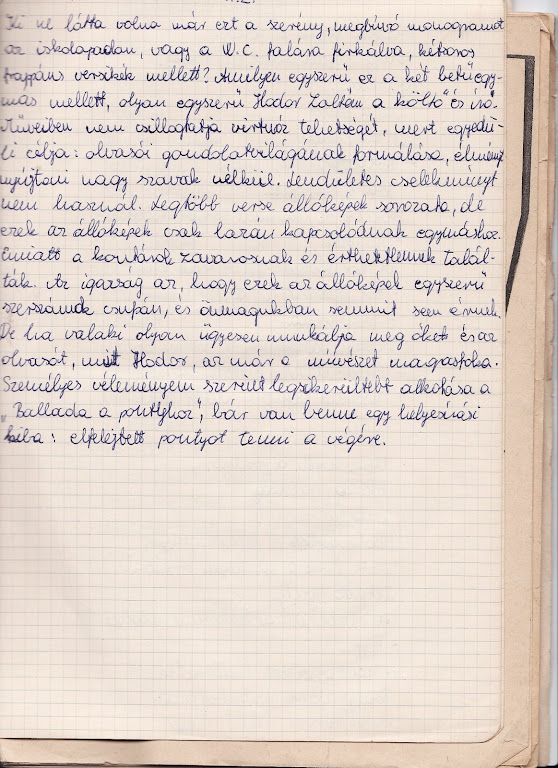 Ki ne látta volna már ezt a szerény, megbúvó monogramot
az iskolapadon, vagy a W.C. falára firkálva, kétsoros
frappáns versikék mellett? Amilyen egyszerű ez a két betű egy-
más mellett, olyan egyszerű Hodor Zoltán a költő és író.
Műveiben nem csillogtatja virtuóz tehetségét, mert egyedü-
li célja: olvasói gondolatvilágának formálása, élményt
nyújtani nagy szavak nélkül. Lendületes cselekményt
nem használ. Legtöbb verse állóképek sorozata, de
ezek az állóképek csak lazán kapcsolódnak egymáshoz.
Emiatt a kortársak zavarosnak és érthetetlennek talál-
ták. Az igazság az, hogy ezek az állóképek egyszerű
szerszámok csupán, és önmagukban semmit sem érnek.
De ha valaki olyan ügyesen munkálja meg őket és az
olvasót, mint Hodor, az már a művészet magasfoka.
Személyes véleményem szerint legsikerültebb alkotása a
"Ballada a ponthyhoz", bár van benne egy helyesírási
hiba: elfelejtett pontyot tenni a végére.